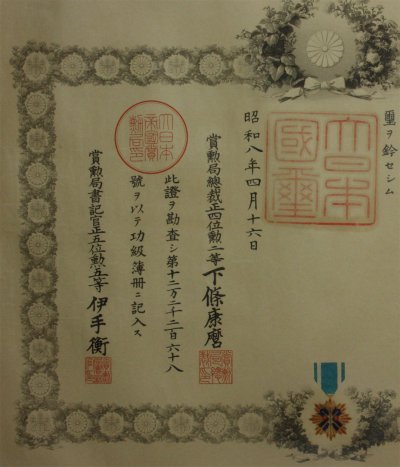 璽ヲ鈐セシム
大日本
國璽
昭和八年四月十六日
賞勲局總裁正四位勲二等下條康麿
此證ヲ勘査シ第十二万二千二百六十八
號ヲ以テ功級簿冊ニ記入ス
大日本
帝國賞
勲局印
賞勲局書記官正五位勲五等伊手衡